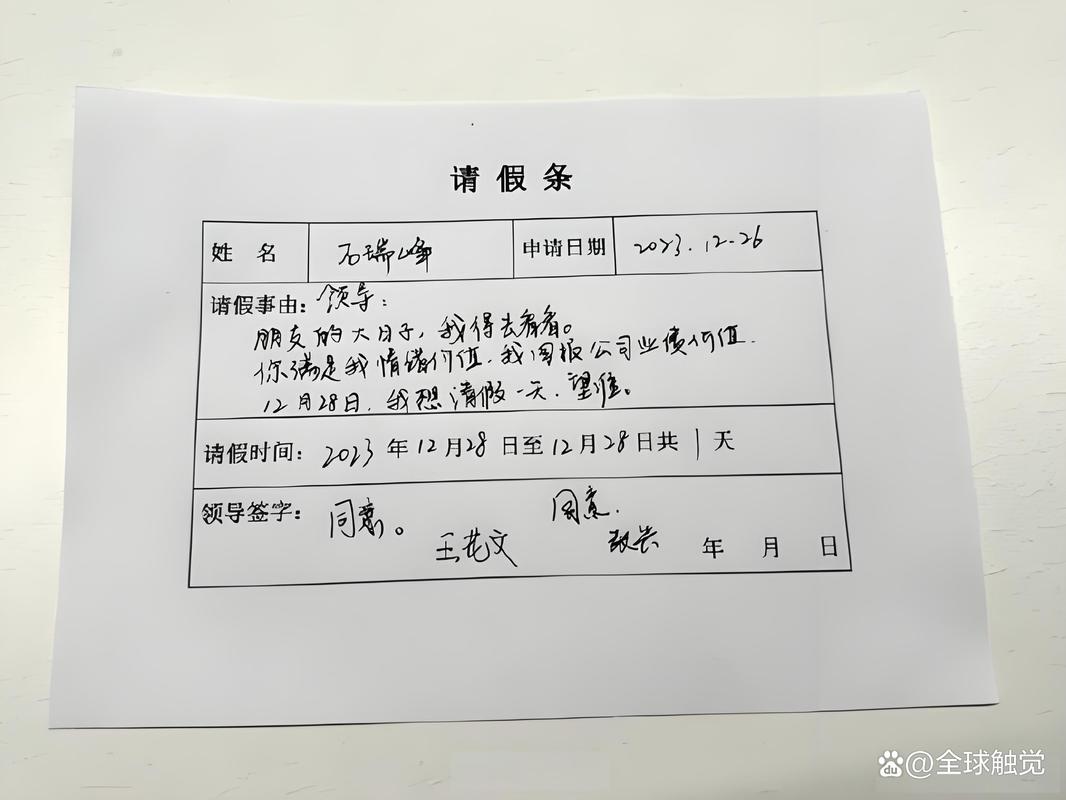 请假条
姓 名 石瑞峰 申请日期 2023.12-26
请假事由：领导：
朋友的大日子，我得去看看。
你满足我情绪价值，我回报公司业绩价值.
12月28日，我想请假一天，望准。
请假时间：2023年12月28日至12月28日共1天
领导签字：同意。 同意.
王花文 年 月 日
@全球触觉